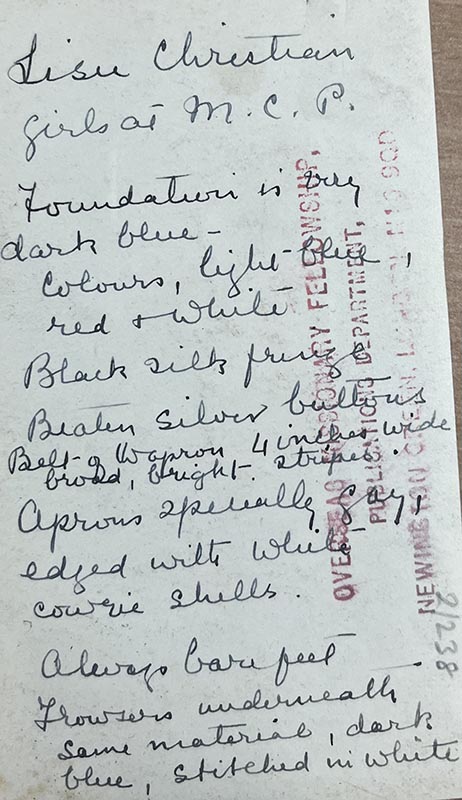 Lisu Christian
girls at M. C. P.
Foundation is very
dark blue -
Colours, light blue,
red & white
Black silk fringe
Beaten silver buttons
Belt of apron 4 inches wide
broad, bright stripes.
Aprons specially gay,
edged with white
cowrie shells.
Always bare feet.
Trowsers underneath
same material, dark
blue, stitched in white
OVERSEAS MISSIONARY FELLOWSHIP,
PUBLICATIONS DEPARTMENT,
NEWINGTON GREEN, LONDON, N16 9QD
2/238